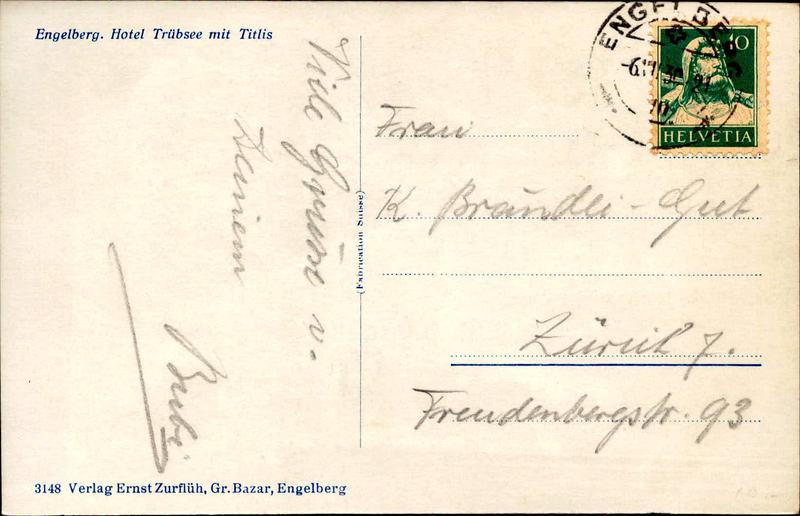 Engelberg. Hotel Trübsee mit Titlis
Viele Grüsse v.
Deinem
Bubi
(Fabrication Suisse)
ENGELBERG
10
HELVETIA
Frau
K. Brändli-Gut
Zürich 7.
Freudenbergstr. 93
3148 Verlag Ernst Zurflüh, Gr. Bazar, Engelberg